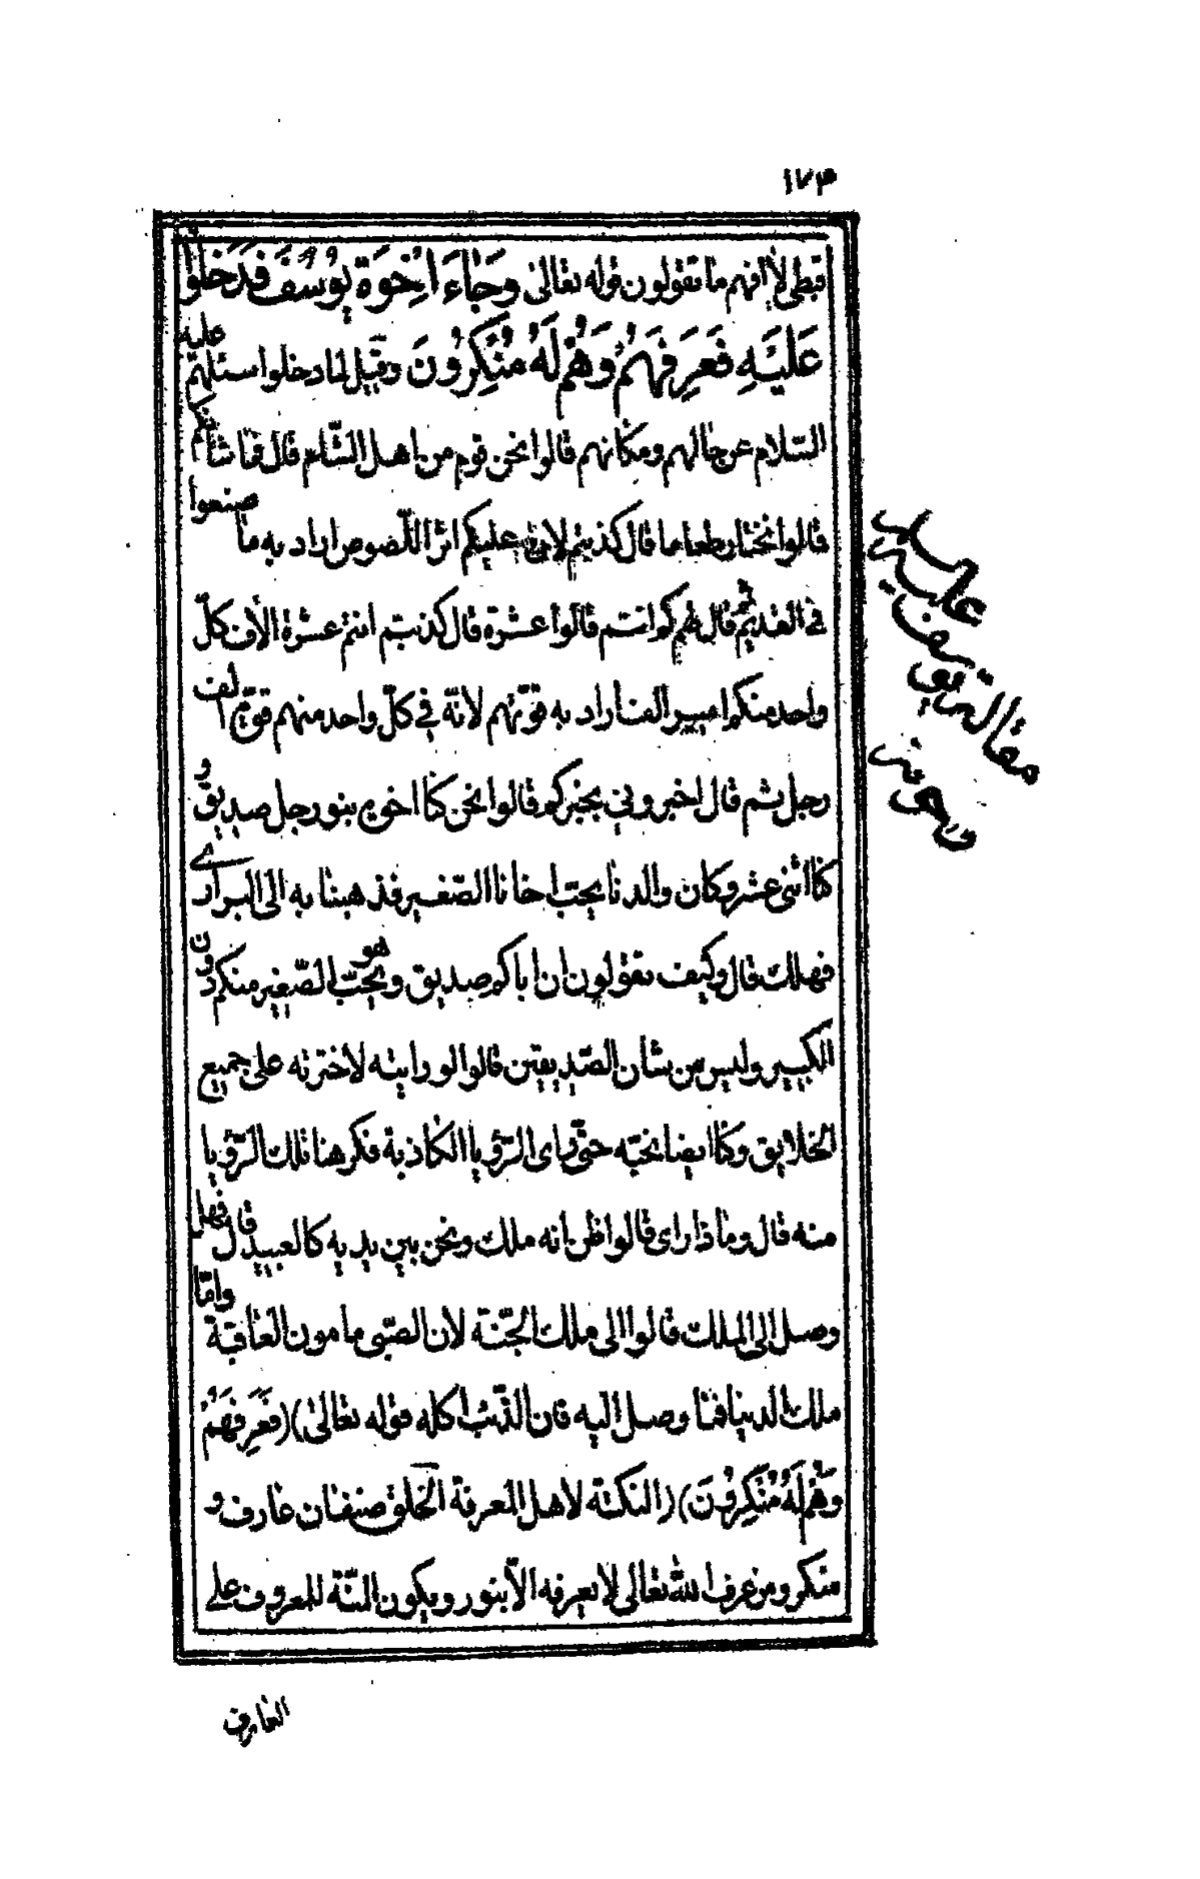 ١٧٣
قبطى لا افهم ما تقولون قوله تعالى وَجَاءَ اِخْوَةُ يُوسُفَ فَدَخَلُوا
عَلَيْهِ فَعَرَفَهُمْ وَهُمْ لَهُ مُنْكِرُونَ وقيل لما دخلوا سئلهم عليه
السّلام عن حالهم ومكانهم قالوا نحن قوم من اهل الشّام قال فما شأنكم
قالوا نختار طعاما قال كذبتم لارى عليكم اثر اللّصوص اراد به ما صنعوا
فى القديم ثم قال لهم كم انتم قالوا عشرة قال كذبتم انتم عشرة الاف كلّ
واحد منكم امير الف اراد به قوّتهم لانّه فى كلّ واحد منهم قوّة الف
رجل ثم قال اخبرونى بخبركم قالوا نحن كنا اخوة بنو رجل صديق و
كنا اثنى عشر وكان والدنا يحبّ اخا نا الصّغير فذهبنا به الى البرارى
فهلك قال وكيف تقولون ان اباكم صديق وهو يحبّ الصّغير منكم دون
الكبير وليس من شأن الصّديقين قالوا لو رايته لاخترته على جميع
الخلايق وكنا ايضا نحبّه حتّى راى الرّؤيا الكاذبة فكرهنا تلك الرّؤيا
منه قال وما ذا راى قالوا ظن انه ملك ونحن بين يديه كالعبيد قال فهل
وصل الى الملك قالوا الى ملك الجنّة لان الصّبى مامون العاقبة وامّا
ملك الدنيا فما وصل اليه فان الذّئب اكله قوله تعالىٰ) (فَعَرَفَهُمْ
وَهُمْ لَهُ مُنْكِرُونَ) (النكتة لاهل المعرفة الخلق صنفان عارف و
منكر ومن عرف اللّٰه تعالى لا يعرفه الّا بنور ويكون المنّة للمعروف على
العارف